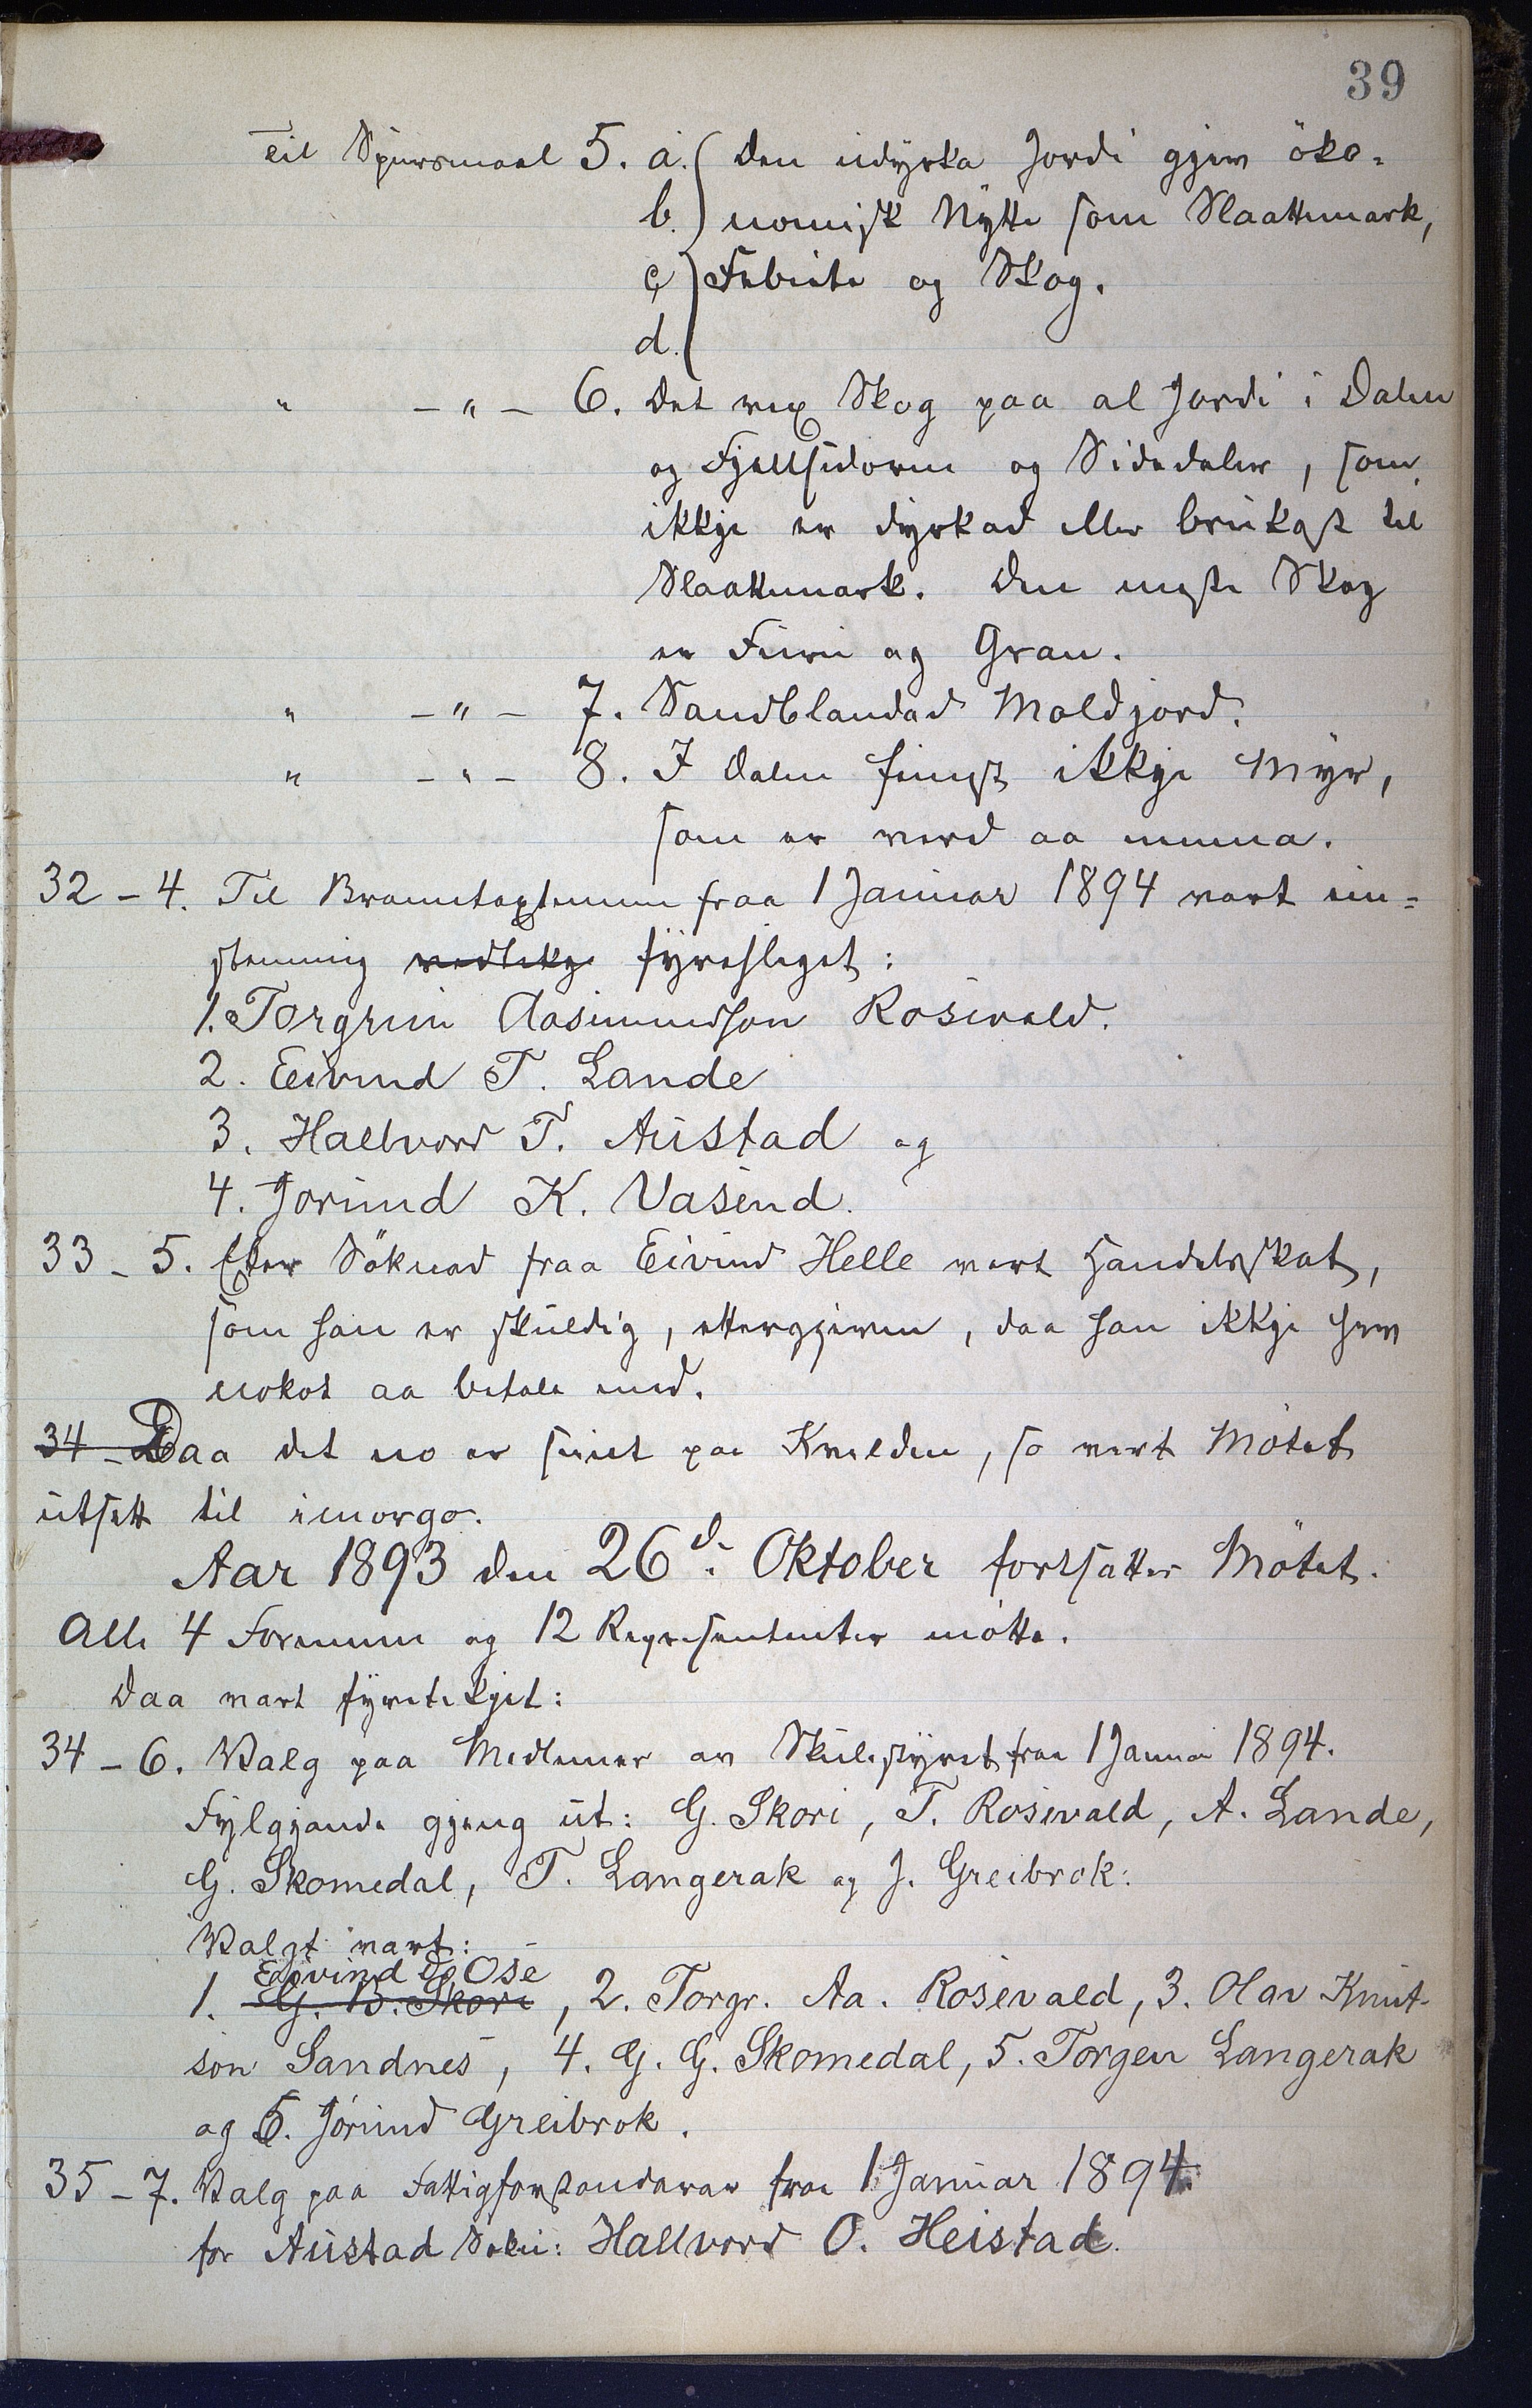 39
Til Spursmaal 5. a. ( Den udyrka Jordi gjev öko-
b. ) nomisk Nytte som Slaattemark,
c. ) Febeite og Skog.
d. (
" - " - 6. Det vex Skog paa al Jordi i Dalen
og Fjellsidorne og Sidedaler, som
ikkje er dyrkad eller brukast til
Slaattemark. Den meste Skog
er Furu og Gran.
" - " - 7. Sandblandad Moldjord.
" - " - 8. I Dalen finnst ikkje Myr,
som er verd aa nemna.
32 - 4. Til Branntakstmenn fraa 1 Januar 1894 vart ein-
stemmig vedtekje fyresleget:
1. Torgrim Aasmundson Rosevald.
2. Eivind T. Lande
3. Hallvord T. Austad og
4. Jorund K. Vasend.
33 - 5. Etter Söknad fraa Eivind Helle vart Handelsskat,
som han er skuldig, ettergjeven, daa han ikkje hev
nokot aa betale med.
34 - Daa det no er seint paa Kvelden, so vert Mötet
utsett til imorgo.
Aar 1893 den 26d. Oktober fortsatter Mötet.
Alle 4 Formenn og 12 Representanter mötte.
Daa vart fyreteikjet:
34 - 6. Valg paa Medlemer av Skulestyret fraa 1 Januar 1894.
Fylgjande gjeng ut: G. Skori, T. Rosevald, A. Lande,
G. Skomedal, T. Langerak og J. Greibrok:
Valgt vart:
Eivind Ose
1. G. B. Skori, 2. Torgr. Aa. Rosevald, 3. Olav Knut-
son Sandnes, 4. G. G. Skomedal, 5. Torgeir Langerak
og 6. Jörund Greibrok.
35 - 7. Valg paa Fattigforstandarar fraa 1 Januar 1894
for Austad Sokn: Hallvord O. Heistad.